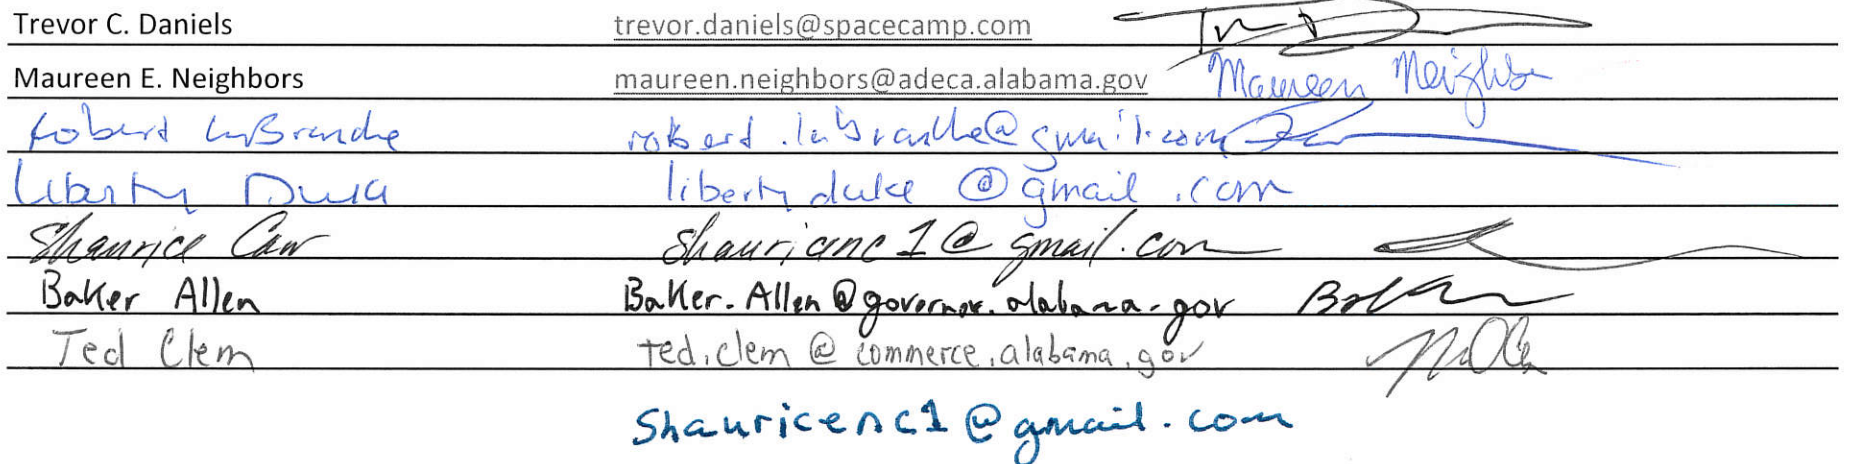 Trevor C. Daniels trevor.daniels@spacecamp.com
Maureen E. Neighbors maureen.neighbors@adeca.alabama.gov Maureen Neighbors
Robert LaBranche robert.labranche@gmail.com
Liberty Duke libertyduke@gmail.com
Shaurice Caw shauricenc1@gmail.com
Baker Allen Baker.Allen@governor.alabama.gov
Ted Clem ted.clem@commerce.alabama.gov
Shauricenc1@gmail.com